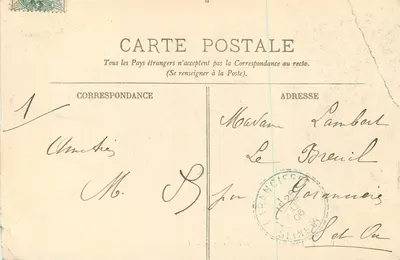 CARTE POSTALE
Tous les Pays étrangers n'acceptent pas la Correspondance au recto.
(Se renseigner à la Poste).
CORRESPONDANCE
ADRESSE
1
Amitiés
M. B
Madame Lambert
Le Breuil
par
S et O